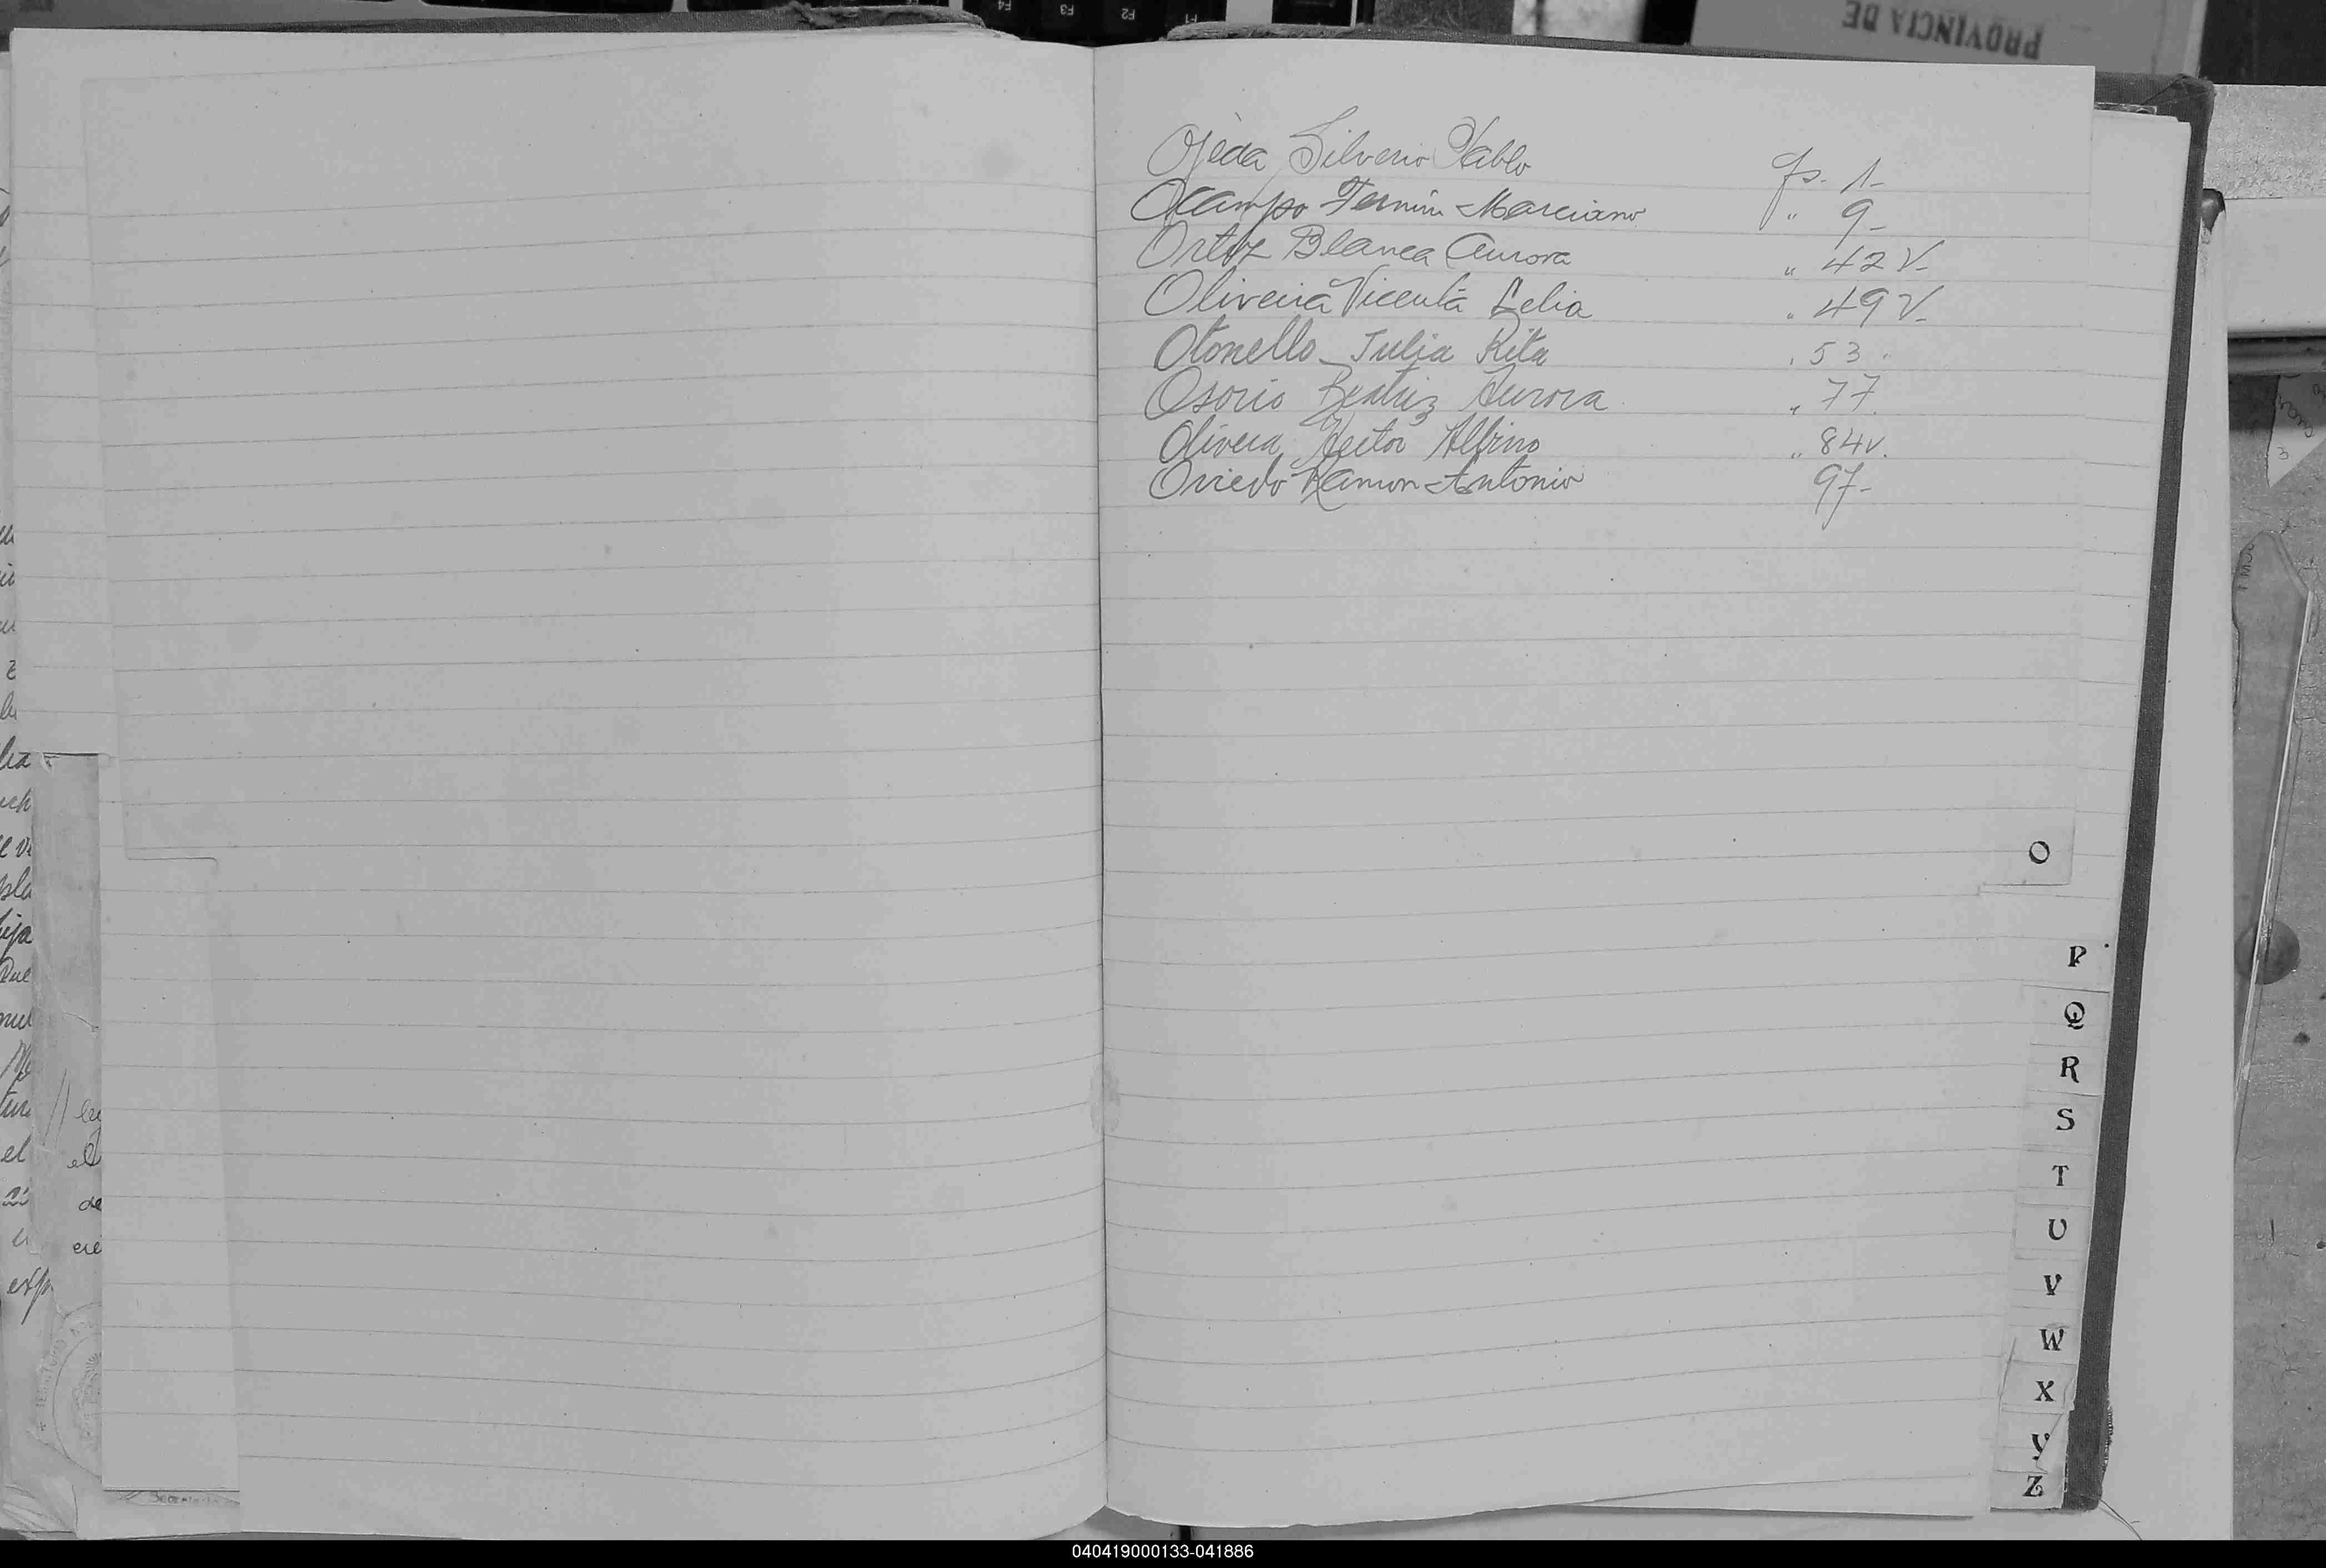 PROVINCIA DE
F4 F3 F2 F1
Ojeda Silverio Pablo fs. 1-
Ocampo Fermin Marciano " 9-
Ortiz Blanca Aurora " 42 v-
Oliveira Vicenta Lelia " 49 v-
Otonello Julia Rita " 53.
Osorio Beatriz Aurora " 77.
Olivera Hector Albino " 84v.
Oviedo Ramon Antonio 97-
O
P
Q
R
S
T
U
V
W
X
Y
Z
el
de
exp
040419000133-041886